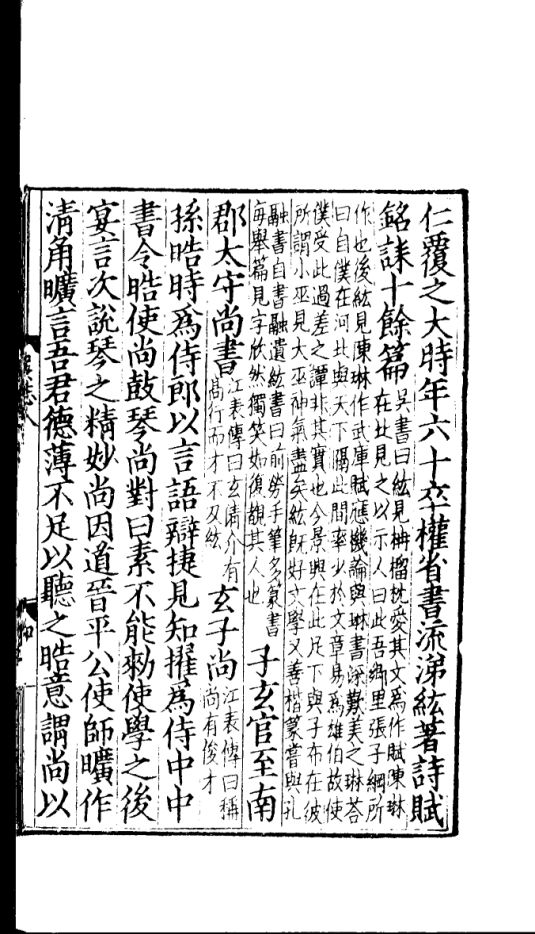 仁覆之大時年六十卒權省書流涕紘著詩賦
銘誄十餘篇
吳書曰紘見柟榴枕愛其文爲作賦陳琳
在北見之以示人曰此吾鄉里張子綱所
作也後紘見陳琳作武庫賦應機論與琳書深歎美之琳荅
曰自僕在河北與天下隔此間率少於文章易爲雄伯故使
僕受此過差之譚非其實也今景興在此足下與子布在彼
所謂小巫見大巫神氣盡矣紘既好文學又善楷篆嘗與孔
融書自書融遺紘書曰前勞手筆多篆書
每舉篇見字欣然獨笑如復覩其人也
子玄官至南
郡太守尚書
江表傳曰玄清介有
高行而才不及紘
玄子尚
江表傳曰稱
尚有俊才
孫皓時爲侍郎以言語辯捷見知擢爲侍中中
書令皓使尚鼓琴尚對曰素不能勑使學之後
宴言次說琴之精妙尚因道晉平公使師曠作
清角曠言吾君德薄不足以聽之皓意謂尚以